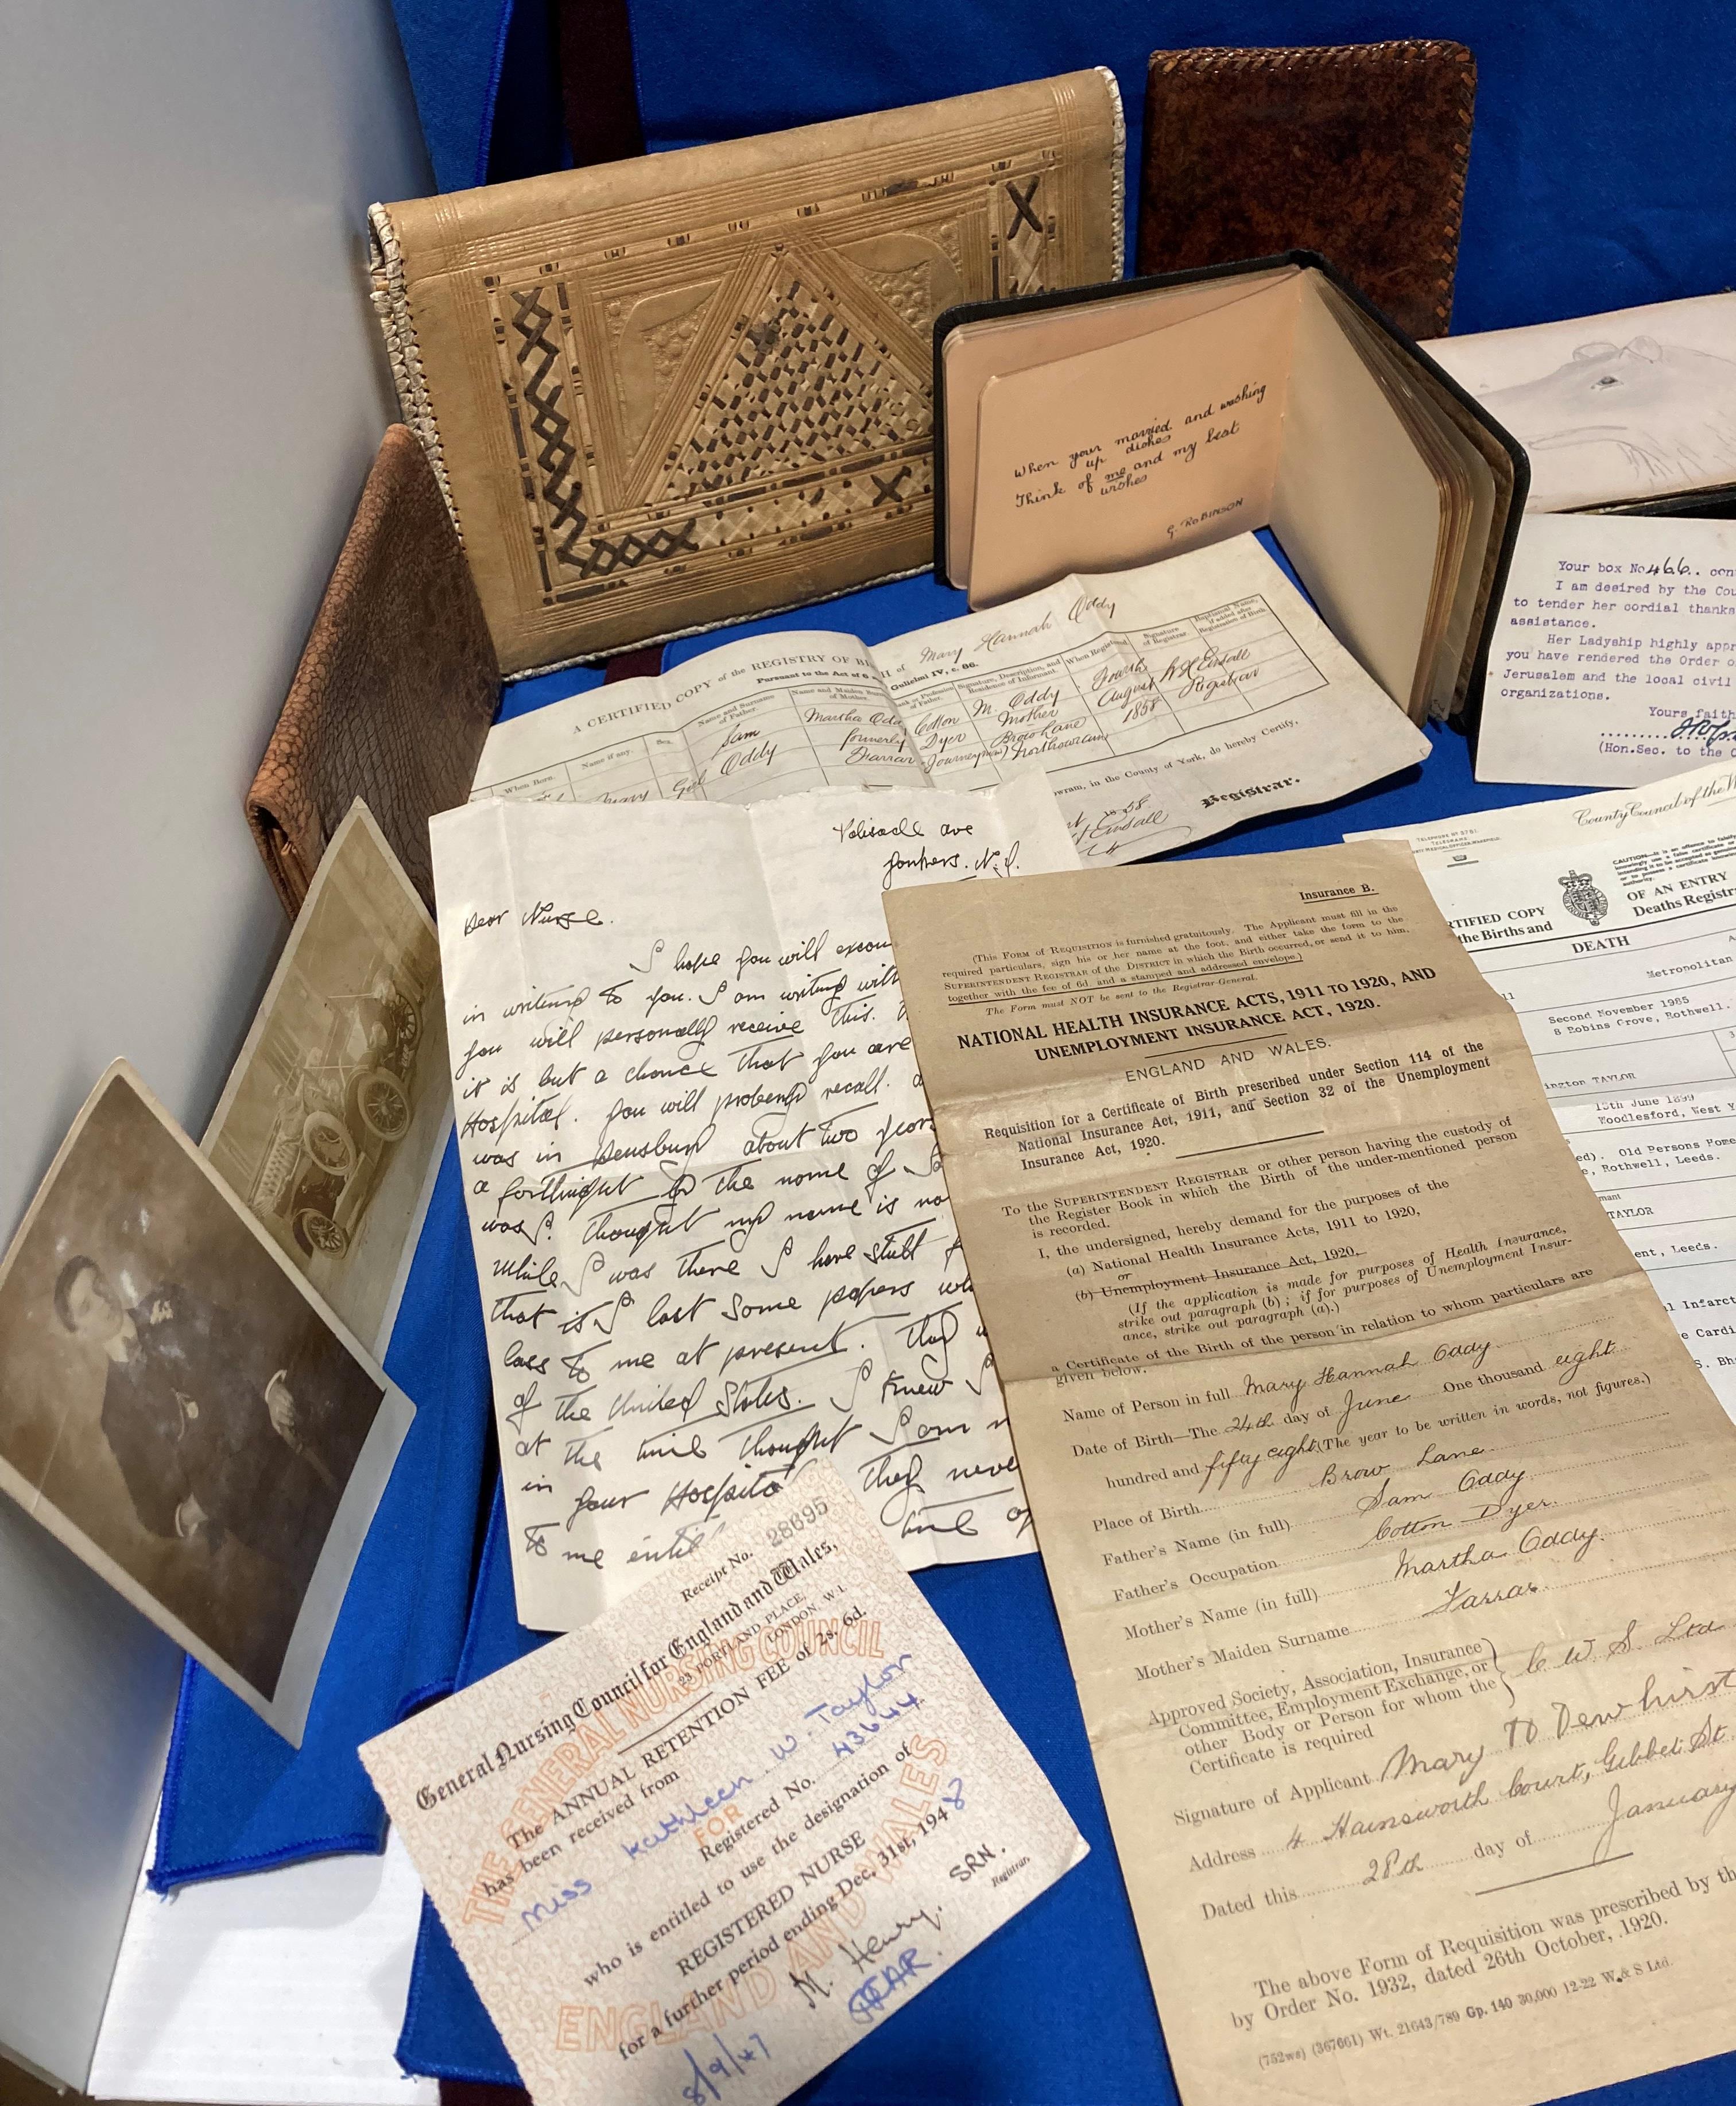 When your married and washing
up dishes
Think of me and my best
wishes
G. ROBINSON
Your box No 466. con
I am desired by the Cou
to tender her cordial thanks
assistance.
Her Ladyship highly appr
you have rendered the Order o
Jerusalem and the local civil
organizations.
Yours faith
(Hon.Sec. to the C
A CERTIFIED COPY of the REGISTRY OF BI H of Mary Hannah Oddy
Pursuant to the Act of 6 a Gulielmi IV, c. 86.
When Born.
Name if any.
Sex.
Name and Surname
of Father.
Name and Maiden
of Mother.
k or Profession
of Father.
Signature, Description, and
Residence of Informant.
When Registered
Signature
of Registrar.
Baptismal Name,
if added after
Registration of Birth.
Mary
Girl
Sam
Oddy
Martha Odd
formerly
Farrar
Cotton
Dyer
(Journeyman)
M. Oddy
Mother
Brow Lane
Northowram
Fourth
August
1858
Registrar
owram, in the County of York, do hereby Certify,
Registrar.
County Council of the W
TELEPHONE No 3751.
CAUTION—It is an offence to
RTIFIED COPY
the Births and
OF AN ENTRY
Deaths Registr
DEATH
Metropolitan
Second November 1985
8 Robins Grove, Rothwell.
ington TAYLOR
15th June 1899
Woodlesford, West Y
ed). Old Persons Home
e, Rothwell, Leeds.
TAYLOR
ent, Leeds.
l Infarct
e Cardi
S. Bh
ave
Yonkers. N.Y.
Dear Nurse.
I hope you will excu
in writing to you. I am writing with
you will personally receive this.
it is but a chance that you are
Hospital. You will probably recall. a
was in Dewsbury about two years
a fortnight by the name of
was I. thought my name is no
While I was there I have still
that is I lost some papers wh
loss to me at present. They w
of the United States. I knew I
at the time thought I am n
in your Hospital They neve
to me
time
Insurance B.
(THIS FORM OF REQUISITION is furnished gratuitously. The Applicant must fill in the
required particulars, sign his or her name at the foot, and either take the form to the
SUPERINTENDENT REGISTRAR of the DISTRICT in which the Birth occurred, or send it to him,
together with the fee of 6d. and a stamped and addressed envelope.)
The Form must NOT be sent to the Registrar-General.
NATIONAL HEALTH INSURANCE ACTS, 1911 TO 1920, AND
UNEMPLOYMENT INSURANCE ACT, 1920.
ENGLAND AND WALES.
Requisition for a Certificate of Birth prescribed under Section 114 of the
National Insurance Act, 1911, and Section 32 of the Unemployment
Insurance Act, 1920.
To the SUPERINTENDENT REGISTRAR or other person having the custody of
the Register Book in which the Birth of the under-mentioned person
is recorded.
I, the undersigned, hereby demand for the purposes of the
(a) National Health Insurance Acts, 1911 to 1920,
or
(b) Unemployment Insurance Act, 1920.
(If the application is made for purposes of Health Insurance,
strike out paragraph (b); if for purposes of Unemployment Insur-
ance, strike out paragraph (a).)
a Certificate of the Birth of the person in relation to whom particulars are
given below.
Name of Person in full Mary Hannah Oddy
Date of Birth—The 24th day of June One thousand eight
hundred and fifty eight (The year to be written in words, not figures.)
Place of Birth Brow Lane
Father's Name (in full) Sam Oddy
Father's Occupation Cotton Dyer.
Mother's Name (in full) Martha Oddy.
Mother's Maiden Surname Farrar
Approved Society, Association, Insurance
Committee, Employment Exchange, or
other Body or Person for whom the
Certificate is required
C W S. Ltd
Signature of Applicant Mary H Dewhirst
Address 4 Hainsworth Court, Gibbet St
Dated this 28th day of January
The above Form of Requisition was prescribed by th
by Order No. 1932, dated 26th October, 1920.
(752ws) (367661) Wt. 21643/789 Gp. 140 30,000 12-22 W. & S Ltd.
Receipt No. 28695
General Nursing Council for England and Wales,
23 PORTLAND PLACE,
LONDON, W.1.
THE GENERAL NURSING COUNCIL
FOR
ENGLAND AND WALES
The ANNUAL RETENTION FEE of 2s. 6d.
has been received from
Miss Kathleen W. Taylor
Registered No. 43644
who is entitled to use the designation of
REGISTERED NURSE
for a further period ending Dec. 31st, 1948
M. Henry. SRN.
Registrar.
8/9/47